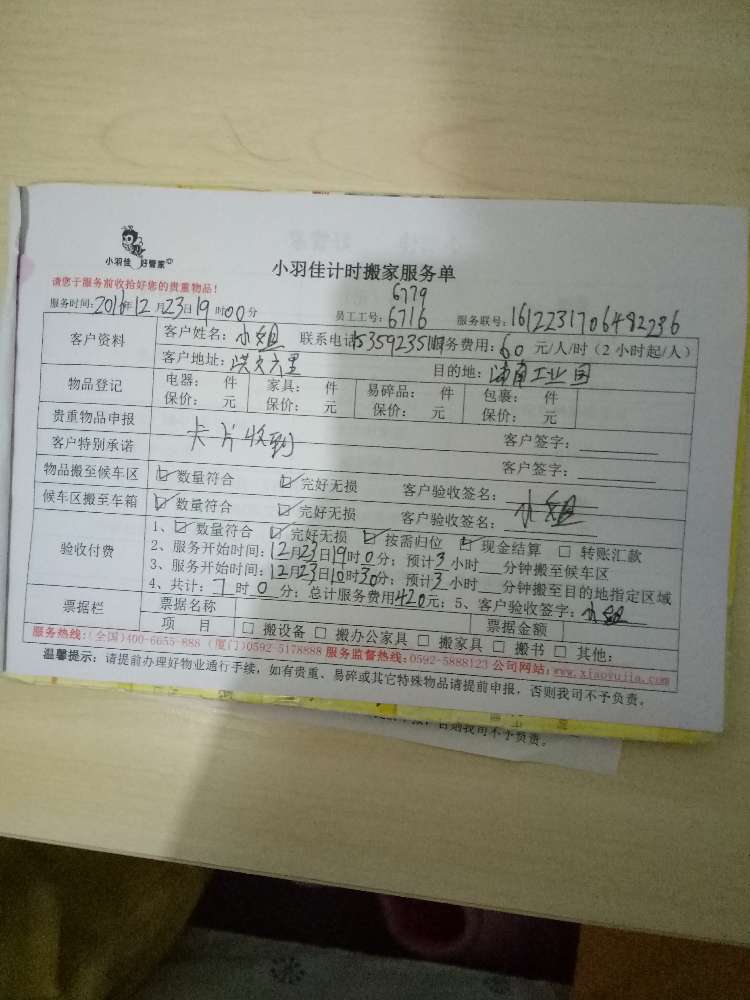 小羽佳 好管家
小羽佳计时搬家服务单
请您于服务前收拾好您的贵重物品！
6779
服务时间：2016年12月23日19时00分 员工工号：6716 服务联号：1612231706482236
客户资料 客户姓名：小姐 联系电话 服务费用：60元/人/时（2小时起/人）
客户地址：洪文六里 目的地：工业园
物品登记 电器： 件 家具： 件 易碎品： 件 包裹： 件
保价： 元 保价： 元 保价： 元 保价： 元
贵重物品申报 卡片收到 客户签字：
客户特别承诺 客户签字：
物品搬至候车区 ☑ 数量符合 ☑ 完好无损 客户验收签名：
候车区搬至车箱 ☑ 数量符合 ☑ 完好无损 客户验收签名：小姐
验收付费 1、☑ 数量符合 ☑ 完好无损 ☑ 按需归位 ☑ 现金结算 □ 转账汇款
2、服务开始时间：12月23日19时0分；预计3小时 分钟搬至候车区
3、服务开始时间：12月23日10时30分；预计3小时 分钟搬至目的地指定区域
4、共计：7时0分；总计服务费用420元；5、客户验收签字：小姐
票据栏 票据名称 票据金额
项 目 □ 搬设备 □ 搬办公家具 □ 搬家具 □ 搬书 □ 其他：
服务热线：（全国）400-6655-888（厦门）0592-5178888 服务监督热线：0592-5888123 公司网站：www.xiaoyujia.com
温馨提示：请提前办理好物业通行手续，如有贵重、易碎或其它特殊物品请提前申报，否则我司不予负责。
否则我司不予负责。